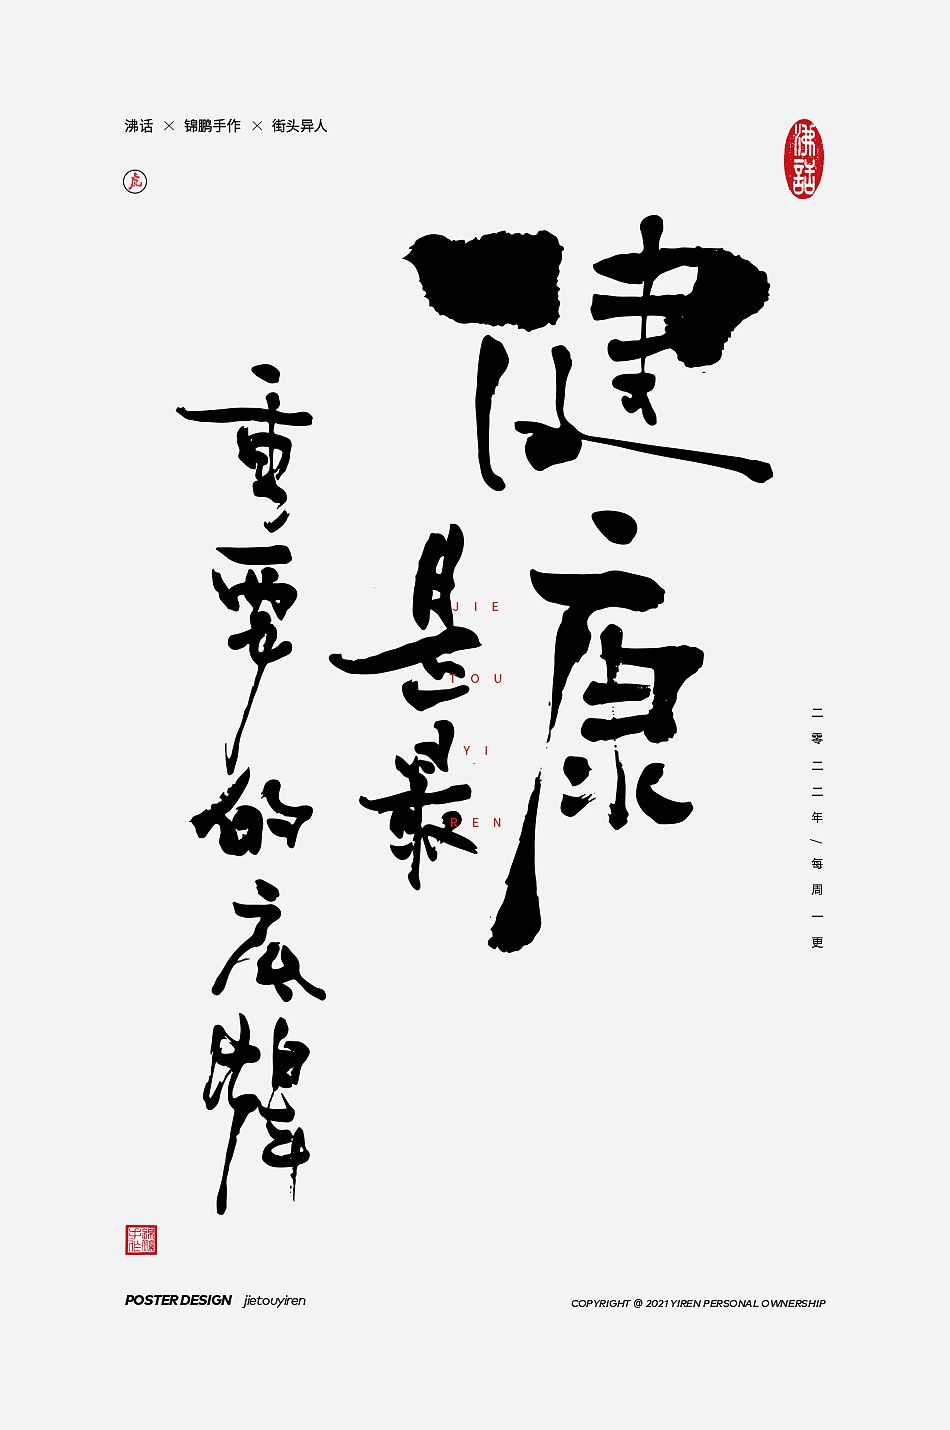 沸话 × 锦鹏手作 × 街头异人
虎
沸話
健康
是最
重要的底牌
JIE
TOU
YI
REN
二零二二年/每周一更
锦鹏手作
POSTER DESIGN jietouyiren
COPYRIGHT @ 2021 YIREN PERSONAL OWNERSHIP